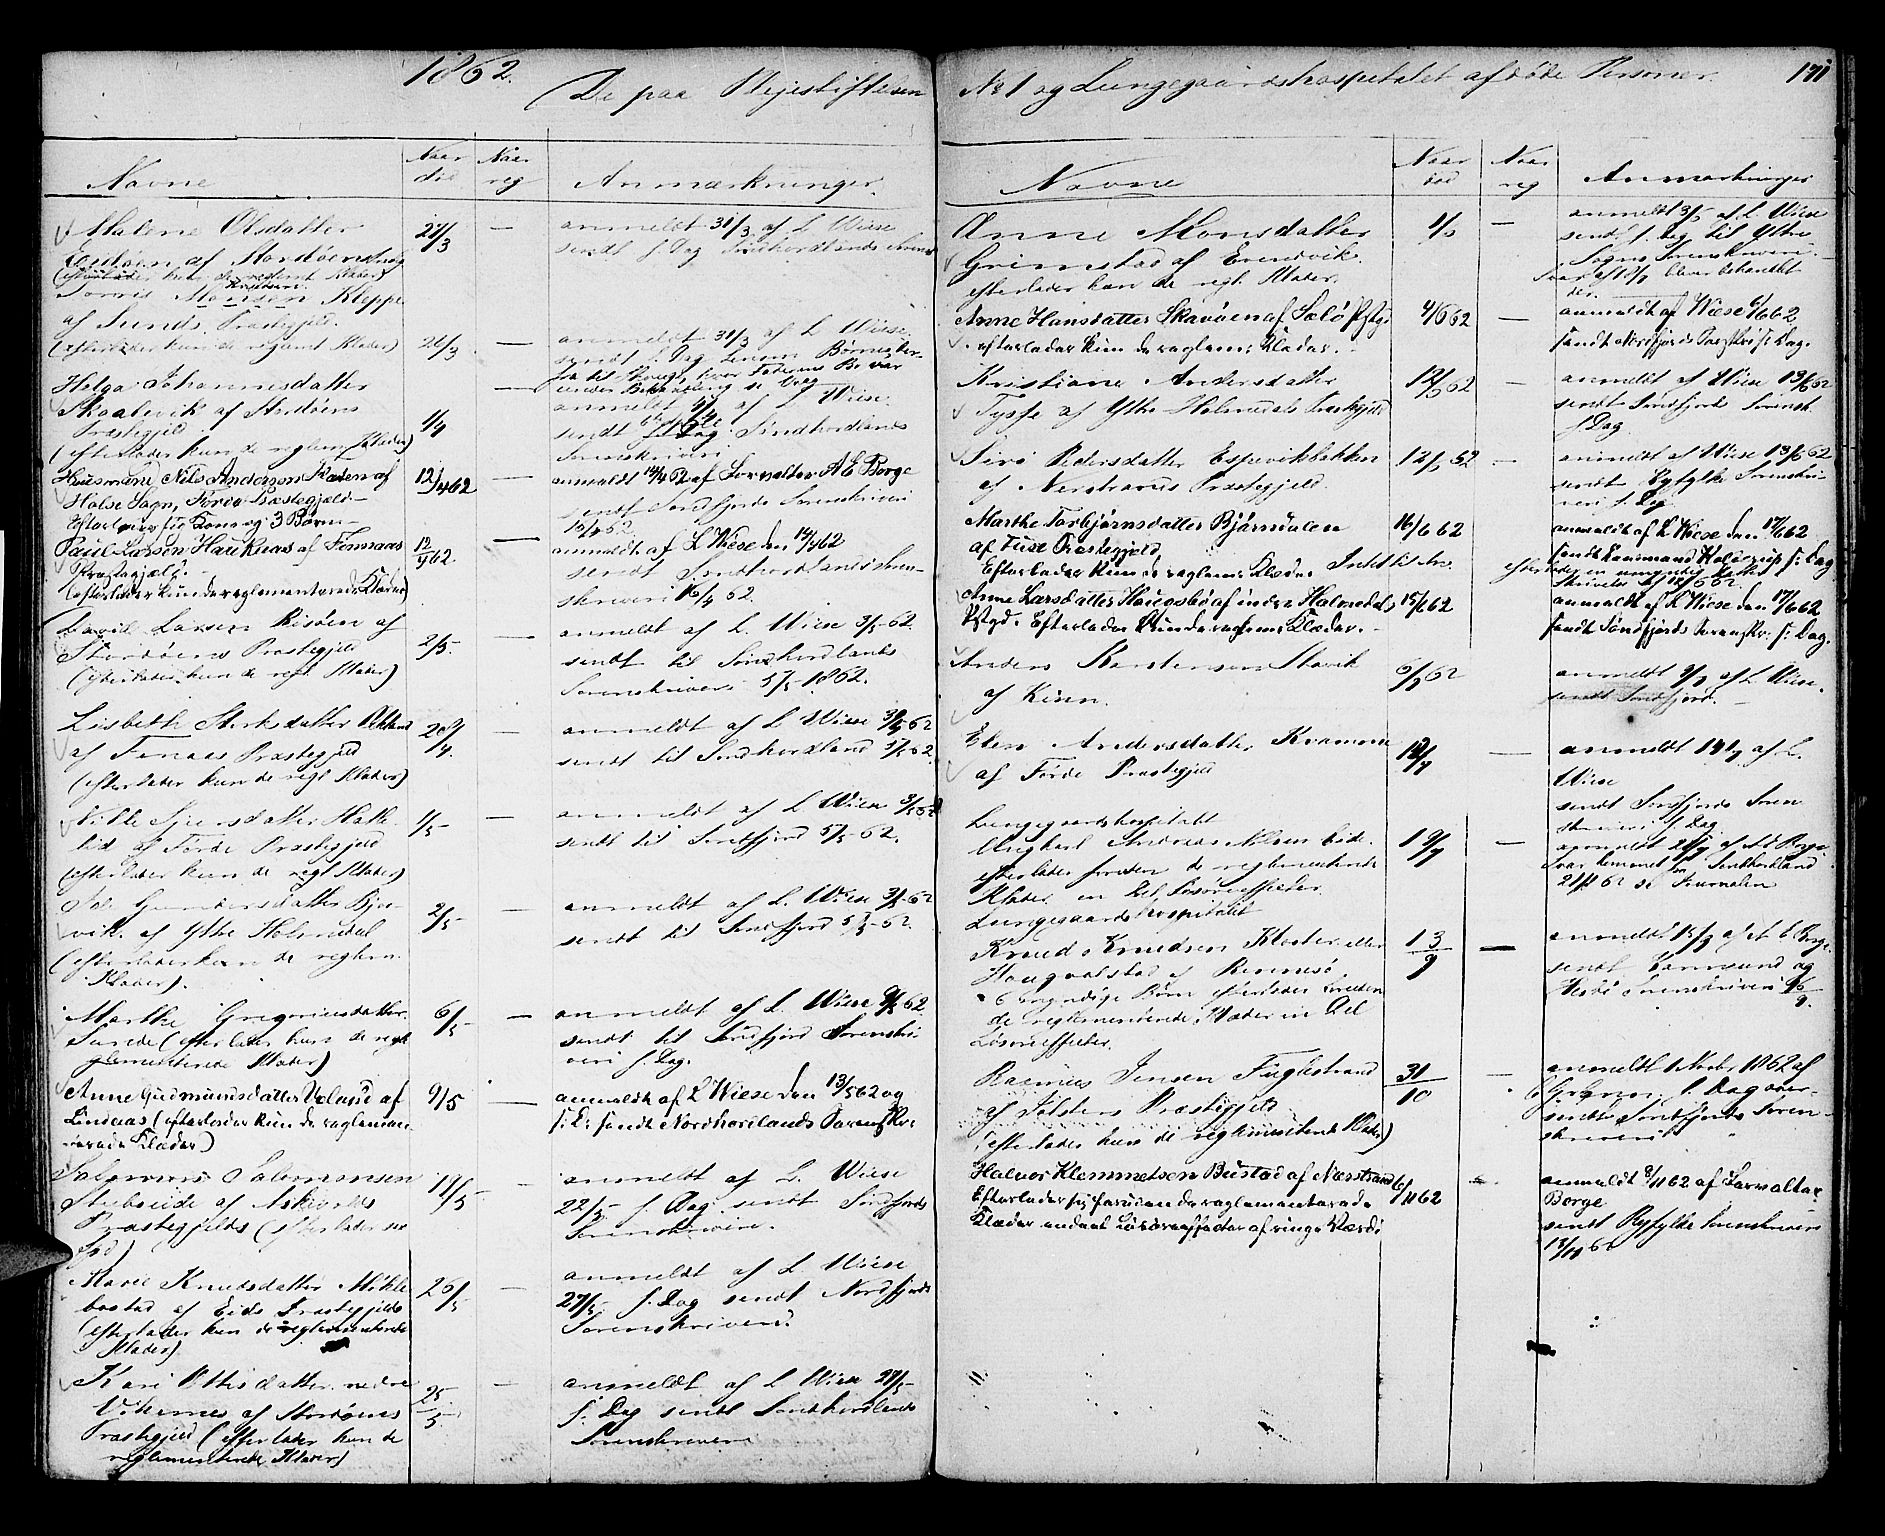 1862.
De paa Plejestiftelsen
Navne
Naar død
Naar reg
Anmærkninger.
Malene Olsdatter
af Stordøens
(efterlader kun de reglemt Klæder)
27/3
anmeldt 31/3 af L. Wiese
sendt s. Dag Søndhordlands Sorensk
Monsen Kleppe
af Sunds Præstegjeld.
(efterlader kun de reglemt Klæder)
26/3
anmeldt 31/3 af L Wiese
Helga Johannesdatter
Skaalevik af Stordøens
Præstegjeld
(efterlader kun de reglem Klæder)
1/4
anmeldt af L Wiese.
sendt s. Dag. Søndhordlands
Sorenskriveri
Huusmand Nils Anderson Kaden af
Holse Sogn, Førde Præstegjeld
Efterlader sig Kone og 3 Børn
12/4 62
anmeldt 14/4 62 af Forvalter A E Borge
sendt Søndfjords Sorenskriveri
15/4 62.
Paul Larsen Hauknæs af Finnaas
Præstegjæld.
(efterlader kun de reglementerede Klæder)
12/4 62
anmeldt af L Wiese den 14/4 62
sendt Søndhordlands Soren-
skriveri 16/4 62.
David Larsen Risøen af
Stordøens Præstegjeld
(efterlader kun de regl Klæder)
2/5
anmeldt af L. Wiese 3/5-62
sendt til Søndhordlands
Sorenskriveri 5/5-1862.
Lisbeth Størksdatter Økland
af Finnaas Præstegjeld
(efterlader kun de regl Klæder)
28/4.
anmeldt af L Wiese 3/5-62
sendt til Søndhordland 5/5-62
Nille Sjursdatter Hatle-
lid af Førde Præstegjeld
(efterlader kun de regl Klæder)
1/5
anmeldt af L Wiese 3/5-62
sendt til Søndfjord 5/5-62.
Gundersdatter Bjør-
vik. af Ytre Holmedal
(efterlader kun de reglem.
Klæder).
2/5
anmeldt af L. Wiese 3/5-62
sendt til Søndfjord 5/5-62.
Marthe Gregoriusdatter
Sunde (efterlader kun de regl
glementerede Klæder)
6/5
anmeldt af L. Wiese 9/5 62
sendt til Søndfjord Sorenskri-
veri s. Dag.
Anne Gudmundsdatter Veland af
Lindaas (efterlader kun de reglemen-
terede Klæder)
9/5
anmeldt af L Wiese den 13/5 62 og
s: D: sendt Nordhordlands Sorenskr:
Salamons Salomonsen
Stubseide af Askvolds
Præstegjelds (efterlader se
19/5
anmeldt af L. Wiese
22/5 s. Dag sendt Søndfjords
Sorenskriveri.
Marie Knudsdatter Mykle-
bostad af Eids Præstegjelds
(efterlader kun de reglementerede
Klæder)
26/5
anmeldt af L. Wiese
27/5 s. Dag sendt Nordfjords
Sorenskriveri.
Kari Ottesdatter nedre
Vikernes af Stordøens
Præstegjeld (efterlader kun de
reglementerede Klæder)
25/5
anmeldt af L Wiese 27/5
s. Dag sendt Søndhordlands
Sorenskriveri
No 1 og Lungegaardshospitalet afdøde Personer.
171
Navne
Naar død
Naar reg
Anmærkninger
Anne Monsdatter
Grimstad af Evindvik
efterlader kun de regl Klæder.
anmeldt af L Wiese
send s. Dag til Ytre
Sogns Sorenskriveri.
Anne Hansdatter Skavøen af Selø Pstgd
efterlader kun de reglem: Klæder.
4/6 62
anmeldt af Wiese 6/6 62
sendt Nordfjords Sorenskr: s: Dag.
Kristiane Andersdatter
Tysse af Ytre Holmedals Præstegjeld
12/6 62
anmeldt af Wiese 13/6 62
sendt Søndfjords Sorensk
s Dag.
Siri Pedersdatter Espevikbakken
af Nerstrands Præstegjeld.
12/6 62
anmeldt af Wiese 13/6 62
sendt Ryfylke Sorenskri-
veri s. Dag
Marthe Torbjørnsdatter Bjørndalen
af Fuse Præstegjeld
Efterlader kun de reglem: Klæder
16/6 62
anmeldt af L Wiese den 17/6 62
sendt Lensmand Koldrup s: Dag
Anne Larsdatter Haugsbø af indre Holmedals
Pstgd. Efterlader kun de reglem: Klæder.
15/6 62
anmeldt af L Wiese den 17/6 62
sendt Søndfjords Sorenskr: s: Dag.
Anders Karstensen Stavik
af Kinn.
6/7 62
anmeldt 9/7 af L Wiese.
sendt Søndfjord.
Elen Andersdatter Kvamme
af Førde Præstegjeld
12/7
anmeldt 14/7 af L.
Wiese
sendt Søndfjords Soren
skriveri s. Dag
Lungegaardshospitalet
Ungkarl Andreas Nilsen Eide
efterlader foruden de reglementerede
Klæder en Del Løsøreeffecter
19/7
anmeldt af A E Borge
Søndhordland
se Journalen
Lungegaardshospitalet
Knud Knudsen Kloster eller
Haugvalstad af Rennesø
6 umyndige Børn efterlader foruden
de reglementerede Klæder en Del
Løsøreeffecter.
13/9
anmeldt 15/9 af A E Borge
sendt Karmsund og
Hesbø Sorenskriveri 16/9.
Rasmus Jensen Fuglestrand
af Jølsters Præstegjeld
(efterlader kun de reglementerede Klæder)
31/10
anmeldt 1 Novbr 1862 af
s. Dag over-
sendt Søndfjords Soren-
skriveri
Halvor Klemmetsen Bustad af Nærstrand
Efterlader sig foruden de reglementerede
Klæder endeel Løsøreeffecter af ringe Værdi
6/11 62
anmeldt 8/11 62 af Forvalter
Borge
sendt Ryfylke Sorenskriveri
13/11 62